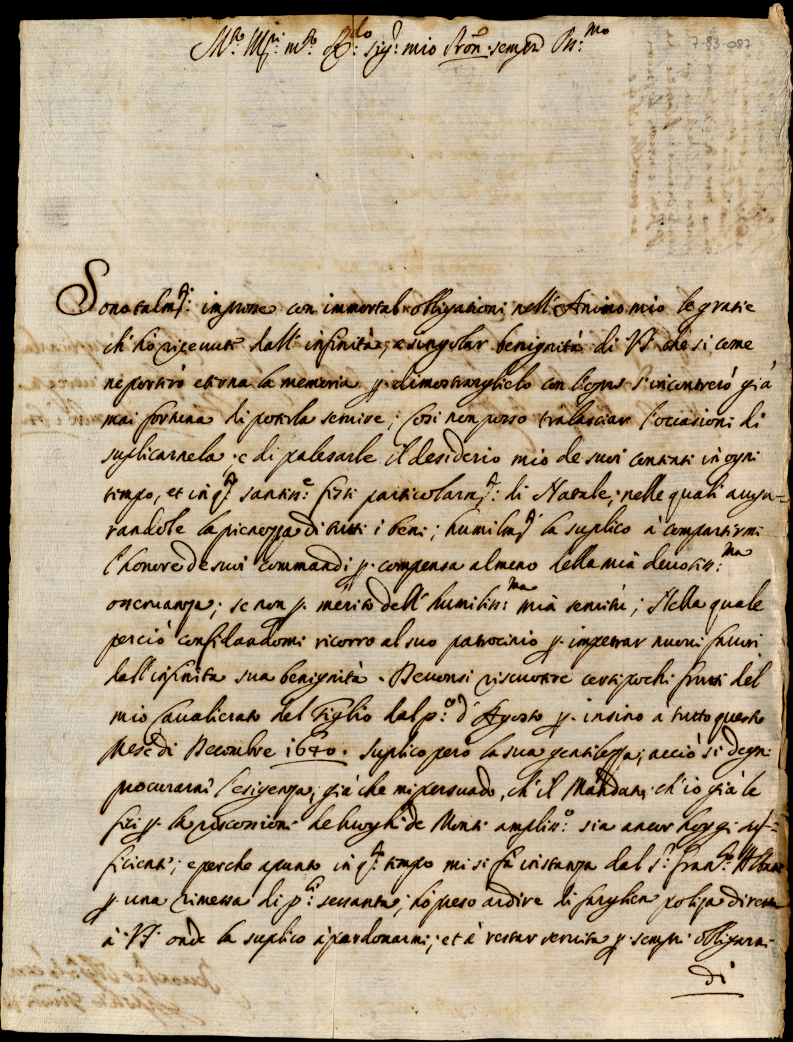 7-83-087
M.to Ill.ri m.to R.do sig.r mio Pron. semp.
Sono talm.te impresse con immortal obligationi nell'Animo mio le gratie
ch'hò riceuute dall'infinità, e singolar benignità di VS. che si come
ne portirò eterna la memoria p. dimostrarglielo con l'opus s'incontrerò già
mai fortuna di poterla seruire; Così non posso tralasciar l'occasioni di
suplicarnela e di palesarle il desiderio mio de suoi contenti in ogni
tempo, et in q.te santiss.e feste particolarm.te di Natale; nelle quali augu=
randole la pienezza di tutti i beni; humilm.te la suplico à compartirmi
l'honore de suoi commandi p. compensa almeno della mià deuotiss.ma
osseruanza; se non p. merito dell'humiliss.ma mià seruitù; Nella quale
perciò confidandomi ricorro al suo patrocinio p. impetrar nuoui fauori
dall'infinita sua benignità. Deuonsi riscuotere certi pochi frutti del
mio Caualierato del Giglio dal p.o d'Agosto p. insino à tutto questo
Mese di Decembre 1640. Suplico pero la sua gentilezza; acciò si degni
procurarmi l'esigenza; già che mi persuado, ch'il Mandato, ch'io già le
feci p. la riscossione de luoghi de Monti ampliss.o sia ancor hoggi suf=
ficiente; e perche apunto in q.to tempo mi si fà instanza dal s.r Fran.co
p. una rimessa di p.li sessanta; hò preso ardire di fargliea poliza diretta
à VS. onde la suplico à pardonarmi; et à restar seruita p. sempre obligarmi
di